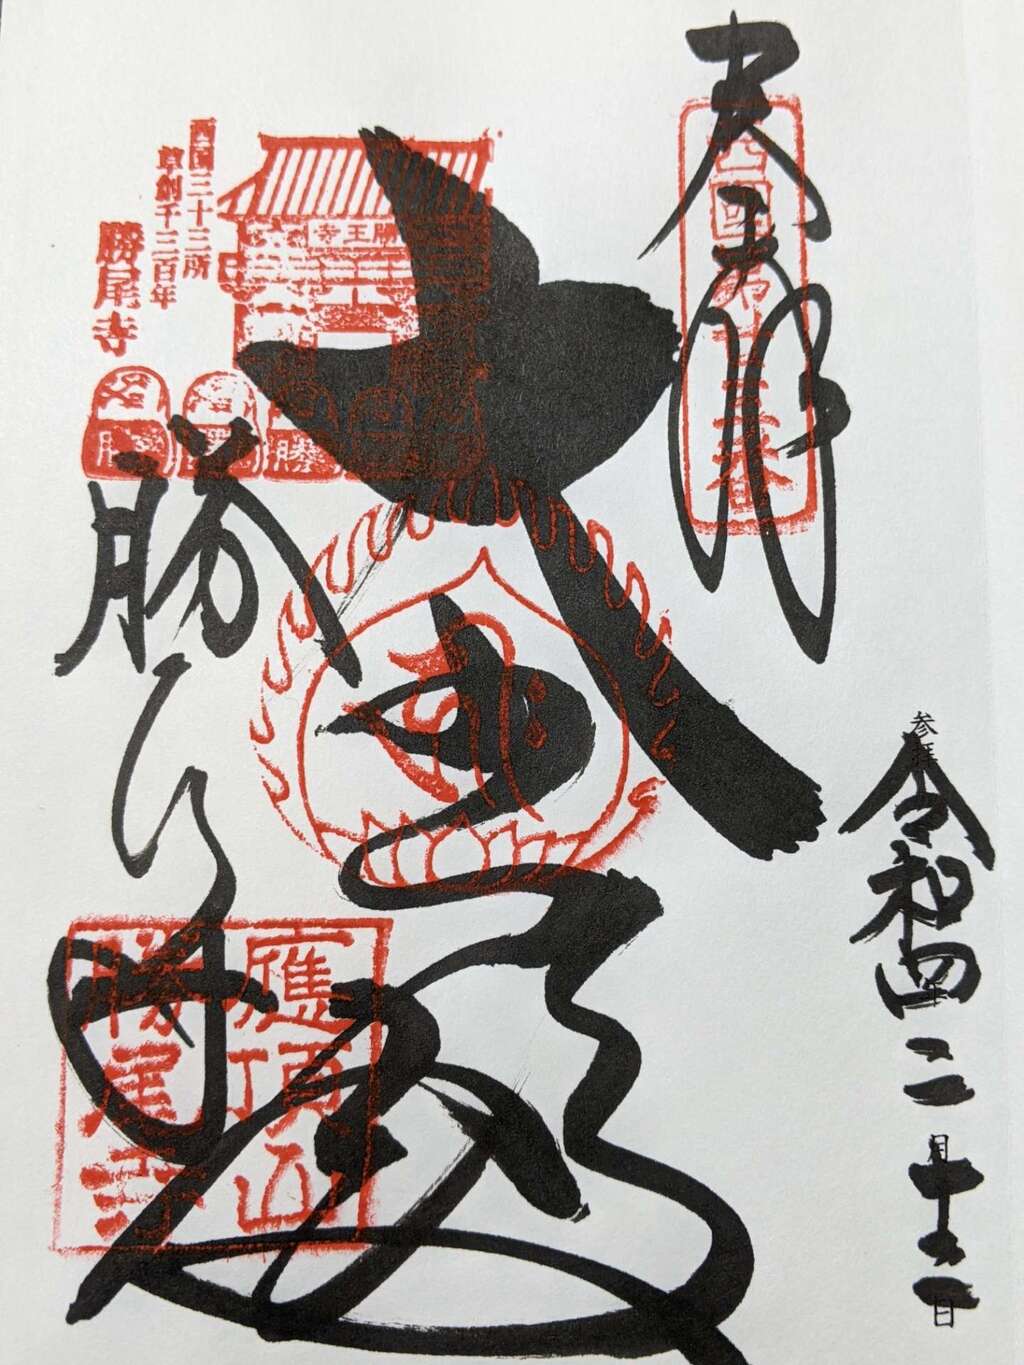 西國第廿三番
参拝
令和四年二月十二日
西国三十三所
草創千三百年
勝尾寺
勝王寺
勝
勝
勝尾寺
應頂山
勝尾寺